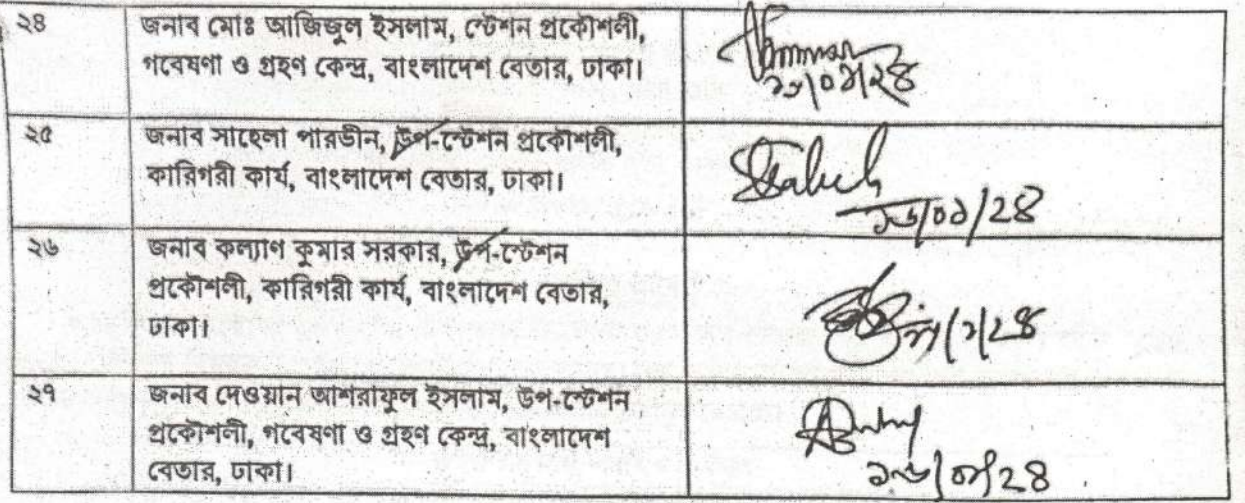 ২৪
জনাব মোঃ আজিজুল ইসলাম, স্টেশন প্রকৌশলী,
গবেষণা ও গ্রহণ কেন্দ্র, বাংলাদেশ বেতার, ঢাকা।
২৫
জনাব সাহেলা পারভীন, উপ-স্টেশন প্রকৌশলী,
কারিগরী কার্য, বাংলাদেশ বেতার, ঢাকা।
২৬
জনাব কল্যাণ কুমার সরকার, উপ-স্টেশন
প্রকৌশলী, কারিগরী কার্য, বাংলাদেশ বেতার,
ঢাকা।
২৭
জনাব দেওয়ান আশরাফুল ইসলাম, উপ-স্টেশন
প্রকৌশলী, গবেষণা ও গ্রহণ কেন্দ্র, বাংলাদেশ
বেতার, ঢাকা।